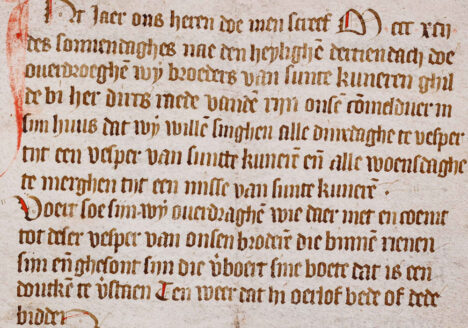 Int Jaer ons heren doe men screef M ccc xcij
des sonnendaghes nae den heylighē dertiendach doe
ouerdroeghē wy broeders van sunte kuneren ghil
de bi her dircs raede vandē rijn onsē cōmelduer in
sijn huus dat wy willē singhen alle dinxdaghe te vesper
tijt een vesper van suncte kunerē eñ alle woensdaghe
te merghen tijt een misse van sunte kunerē ·
Voert soe sijn wy ouerdraghē wie daer niet en coemt
tot deser vesper van onsen broderē die binnē rienen
sijn eñ ghesont sijn die v̄boert sine boete dat is een
doutkē te v̄staen Ten weer dat hi oerlof bede of dede
bidden